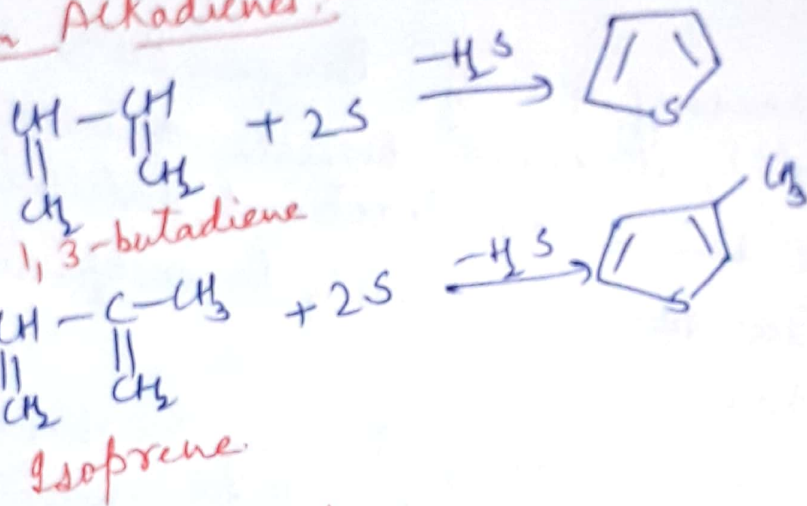 Alkadienes.
CH – CH + 2S –H₂S S
|| ||
CH₂ CH₂
1,3-butadiene
CH – C – CH₃ + 2S –H₂S S CH₃
|| ||
CH₂ CH₂
Isoprene.